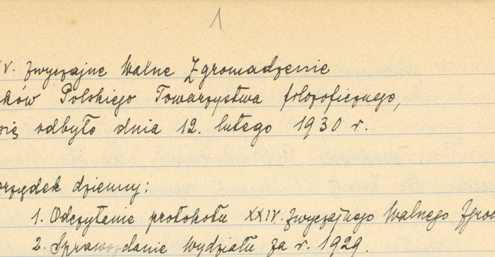 1
V. Zwyczajne Walne Zgromadzenie
ków Polskiego Towarzystwa filozoficznego,
się odbyło dnia 12. lutego 1930 r.
orządek dzienny:
1. Odczytanie protokołu XXIV. Zwyczajnego Walnego Zgro
2. Sprawozdanie wydziału za r. 1929.